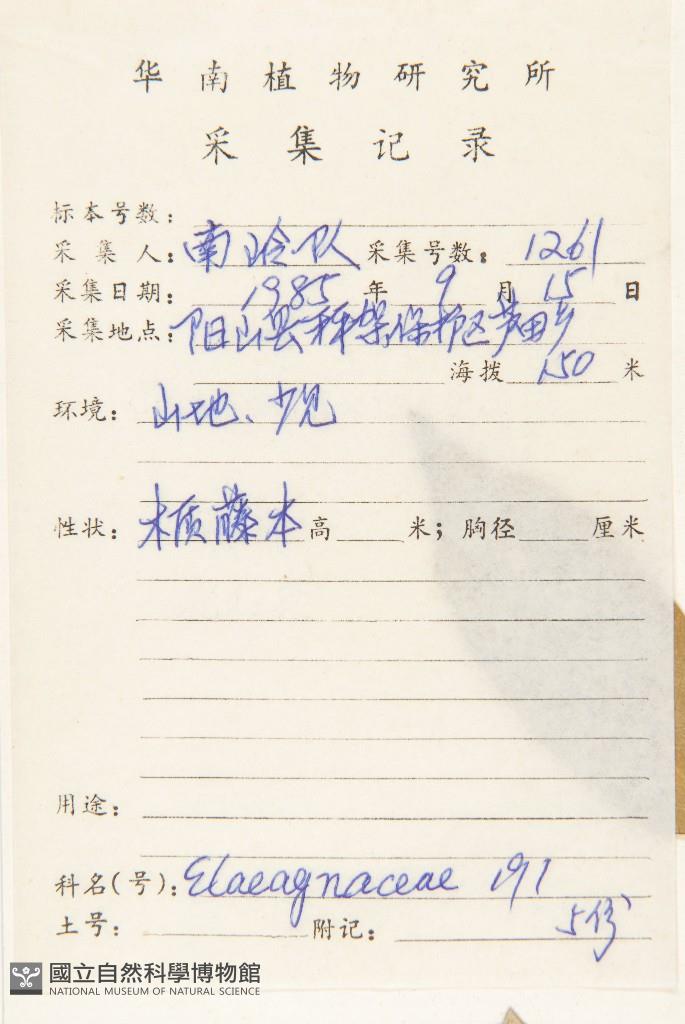 华南植物研究所
采集记录
标本号数：
采集人：南岭队 采集号数：1261
采集日期：1985年9月15日
采集地点：阳山县秤架保护区芦田乡
海拨150米
环境：山地、少见
性状：木质藤本高 米；胸径 厘米
用途：
科名(号)：Elaeagnaceae 191
土号： 附记： 5份
國立自然科學博物館
NATIONAL MUSEUM OF NATURAL SCIENCE